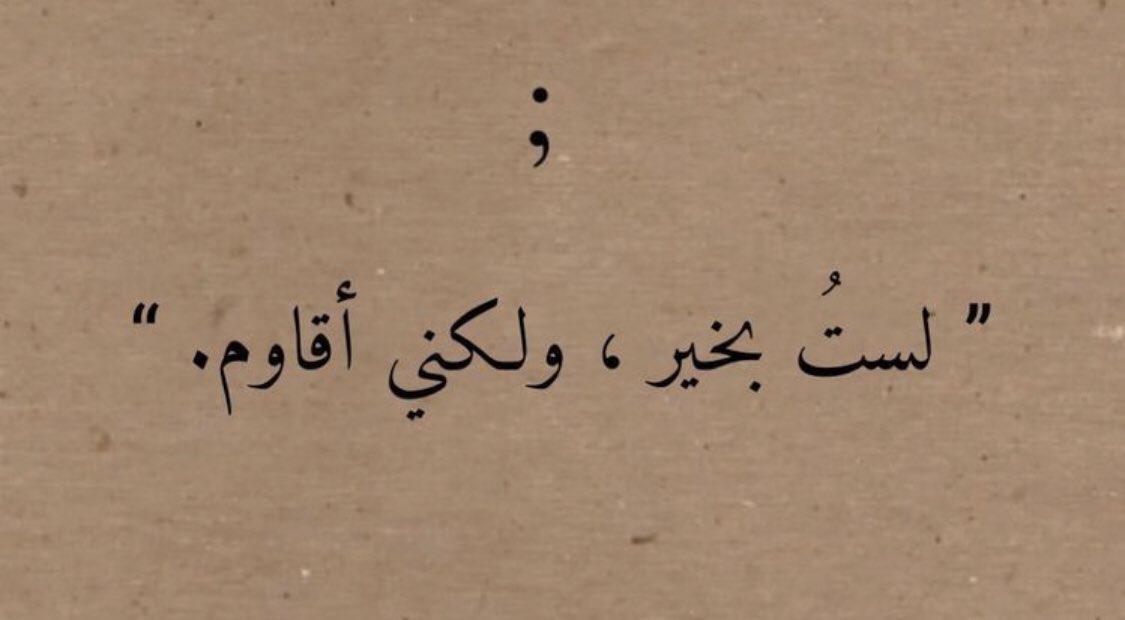 ;
” لستُ بخير ، ولكني أقاوم. “